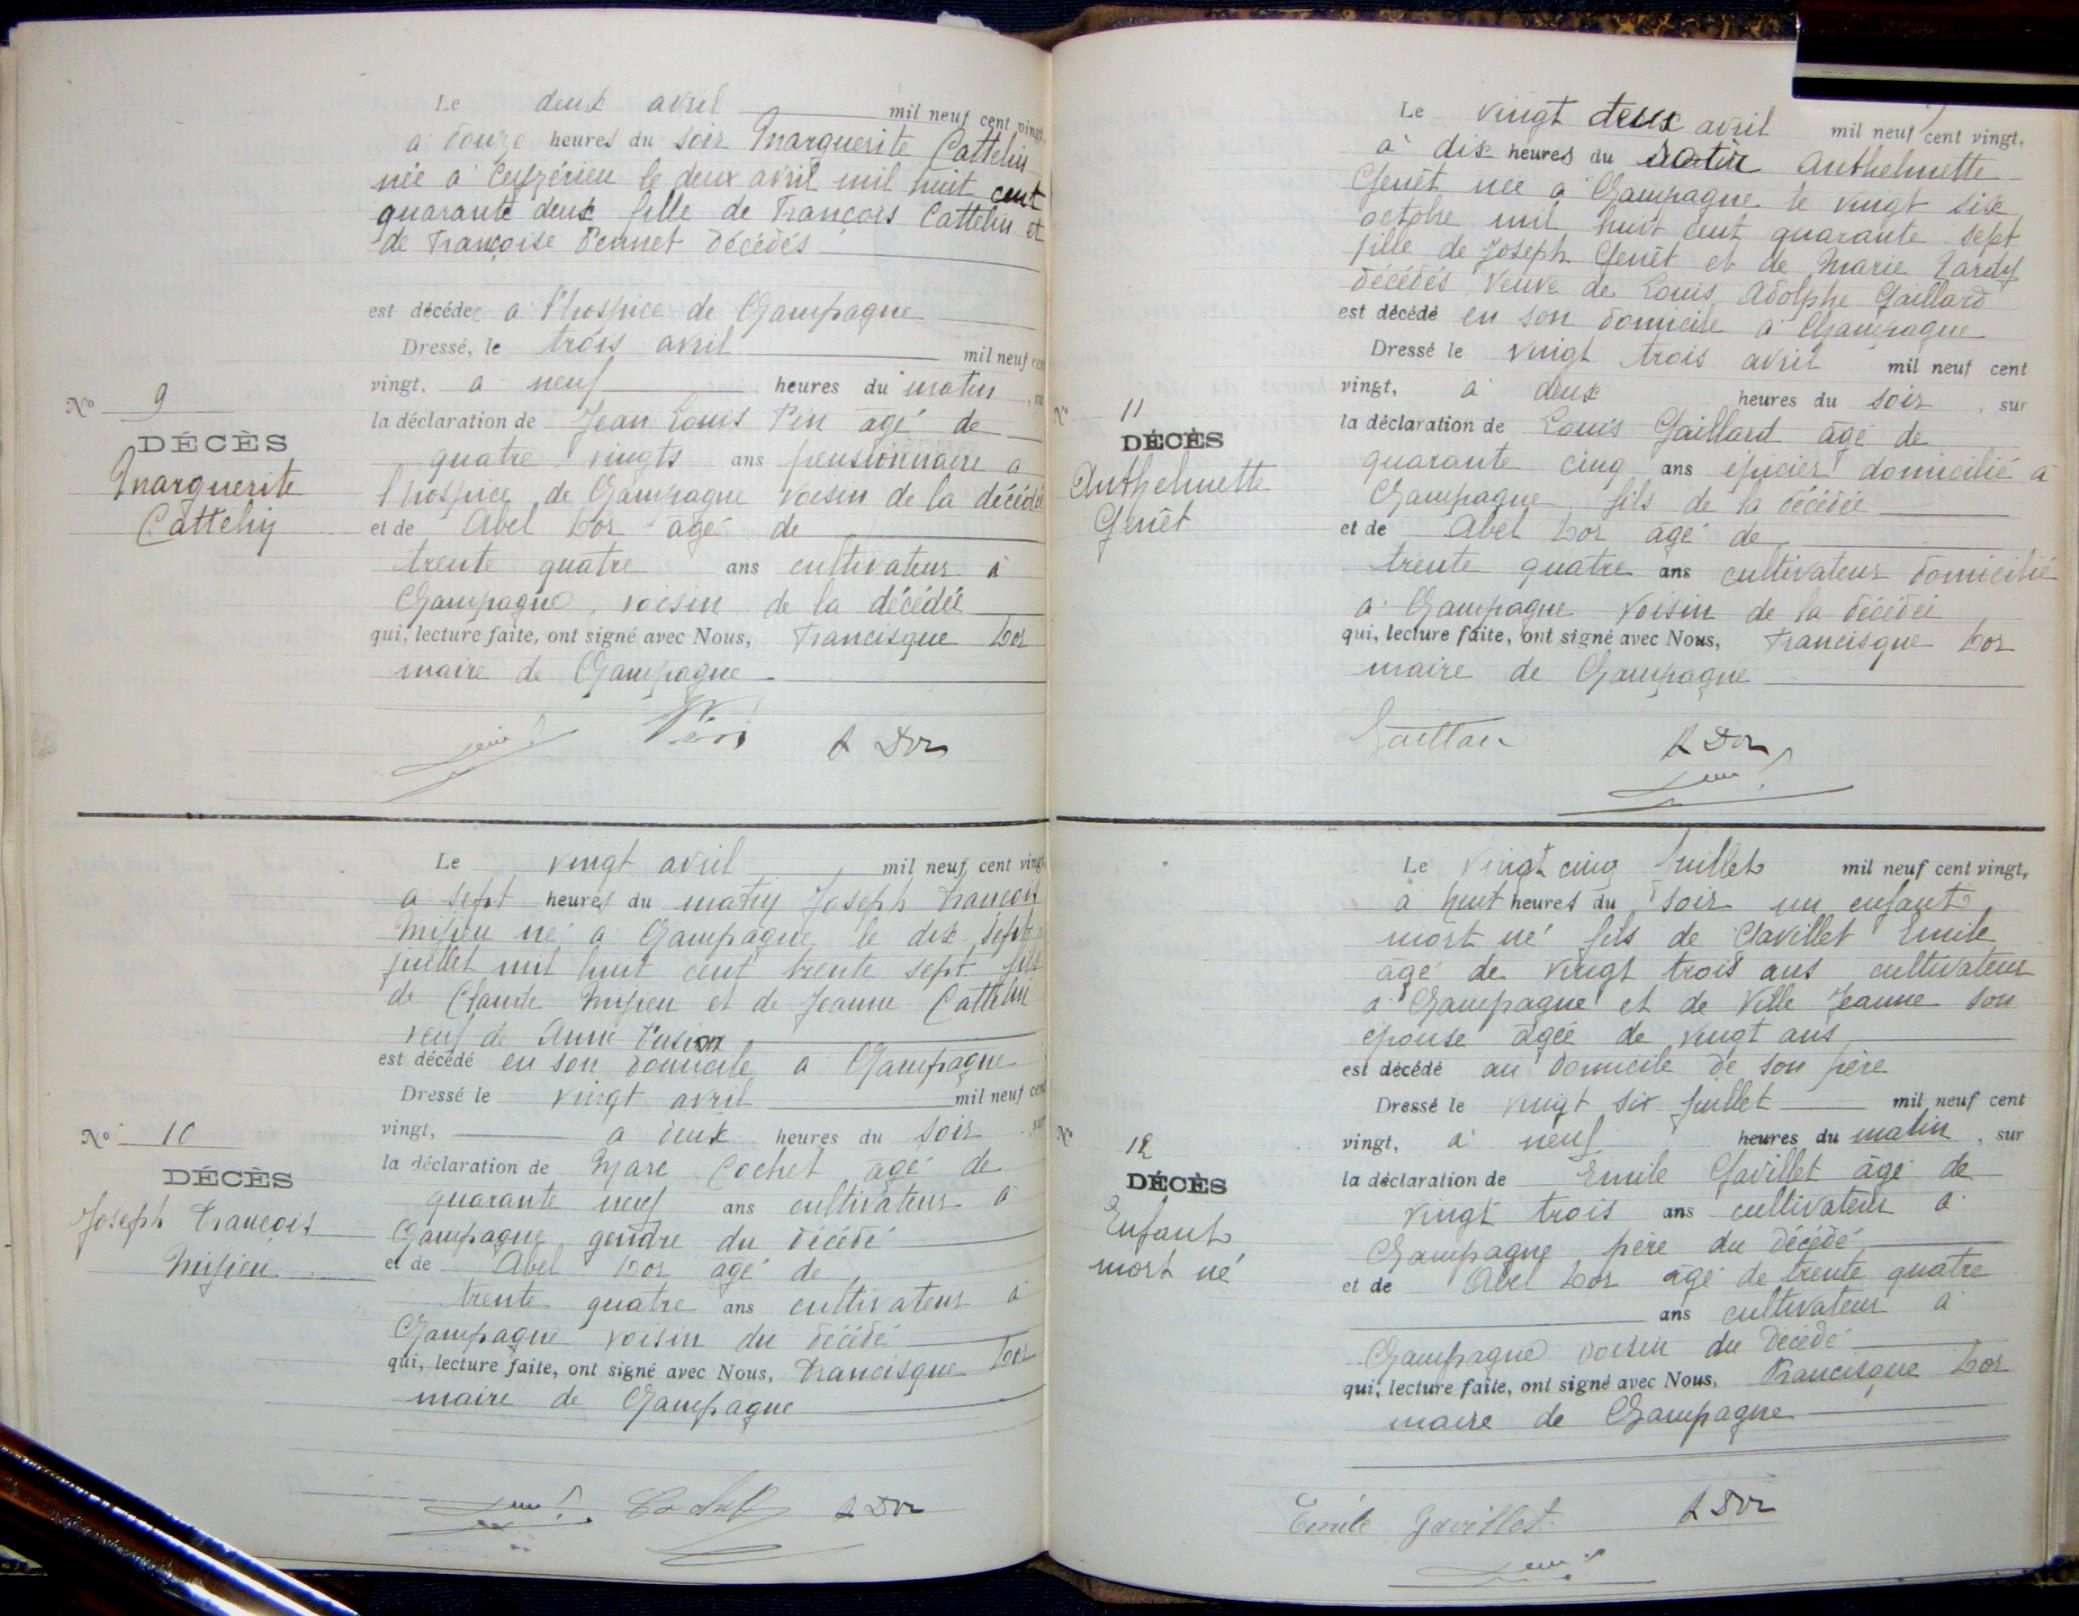 Le deux avril mil neuf cent vingt
à douze heures du soir Marguerite Cattelin
née à Ceyzérieu le deux avril mil huit cent
quarante deux fille de François Cattelin et
de Françoise Pennet décédés
est décédée à l'hospice de Champagne
Dressé, le trois avril mil neuf cent
vingt, à neuf heures du matin
la déclaration de Jean Louis Pin âgé de
quatre vingts ans pensionnaire à
l'hospice de Champagne voisin de la décédée
et de Abel Dor âgé de
trente quatre ans cultivateur à
Champagne, voisin de la décédée
qui, lecture faite, ont signé avec Nous, Francisque Dor
maire de Champagne
A Dor
No 9
DÉCÈS
Marguerite
Cattelin
Le vingt avril mil neuf cent vingt
à sept heures du matin Joseph François
Mifieu né à Champagne le dix sept
juillet mil huit cent trente sept fils
de Claude Mifieu et de Jeanne Cattelin
veuf de Anne
est décédé en son domicile à Champagne
Dressé le vingt avril mil neuf cent
vingt, à deux heures du soir sur
la déclaration de Marc Cochet âgé de
quarante neuf ans cultivateur à
Champagne gendre du décédé
et de Abel Dor âgé de
trente quatre ans cultivateur à
Champagne voisin du décédé
qui, lecture faite, ont signé avec Nous, Francisque Dor
maire de Champagne
Cochet A Dor
No 10
DÉCÈS
Joseph François
Mifieu
Le vingt deux avril mil neuf cent vingt,
à dix heures du matin Anthelmette
Genêt née à Champagne le vingt six
octobre mil huit cent quarante sept
fille de Joseph Genêt et de Marie Tardy
décédés veuve de Louis Adolphe Gaillard
est décédé en son domicile à Champagne
Dressé le vingt trois avril mil neuf cent
vingt, à deux heures du soir, sur
la déclaration de Louis Gaillard âgé de
quarante cinq ans épicier domicilié à
Champagne fils de la décédée
et de Abel Dor âgé de
trente quatre ans cultivateur domicilié
à Champagne voisin de la décédée
qui, lecture faite, ont signé avec Nous, Francisque Dor
maire de Champagne
Gaillard A Dor
No 11
DÉCÈS
Anthelmette
Genêt
Le vingt cinq juillet mil neuf cent vingt,
à huit heures du soir un enfant
mort né fils de Clavillet Emile
âgé de vingt trois ans cultivateur
à Champagne et de Ville Jeanne son
épouse âgée de vingt ans
est décédé au domicile de son père
Dressé le vingt six juillet mil neuf cent
vingt, à neuf heures du matin, sur
la déclaration de Emile Gavillet âgé de
vingt trois ans cultivateur à
Champagne père du décédé
et de Abel Dor âgé de trente quatre
ans cultivateur à
Champagne voisin du décédé
qui, lecture faite, ont signé avec Nous, Francisque Dor
maire de Champagne
Emile Gavillet A Dor
No 12
DÉCÈS
Enfant
mort né